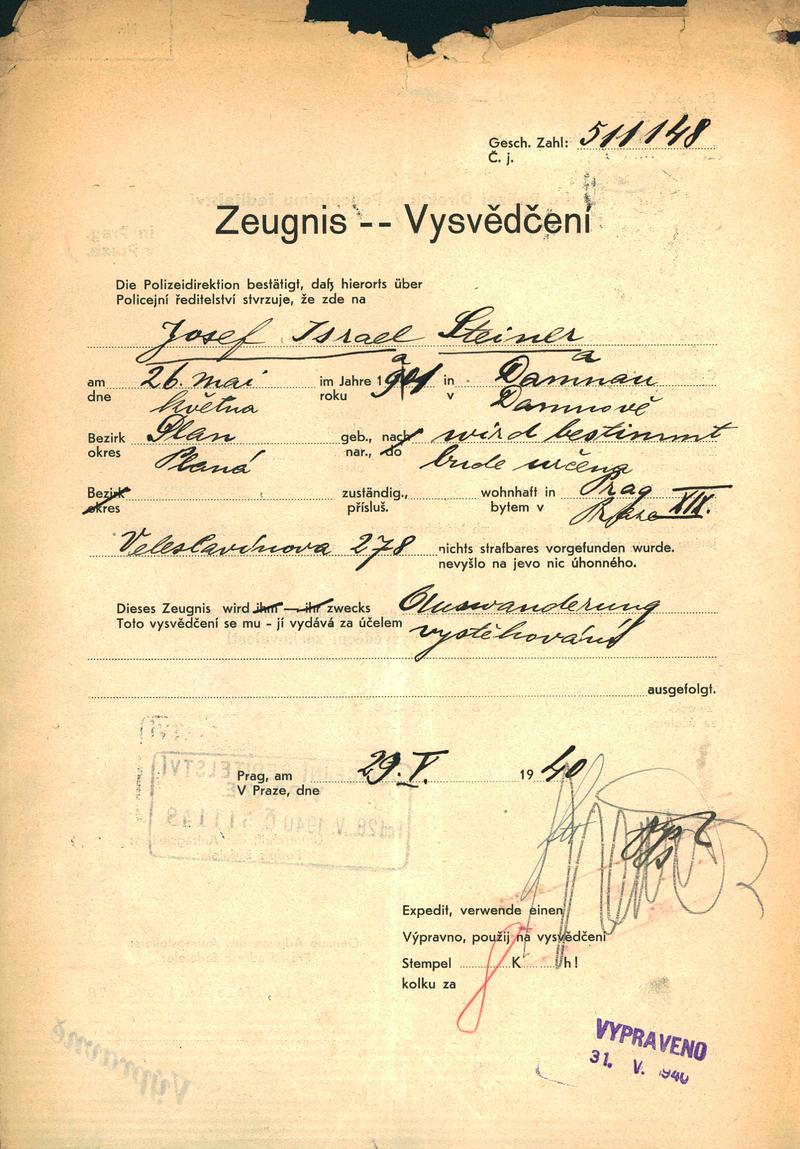 Gesch. Zahl: 511148
Č. j.
Zeugnis -- Vysvědčení
Die Polizeidirektion bestätigt, daß hierorts über
Policejní ředitelství stvrzuje, že zde na
Josef Israel Steiner
a a
am 26. mai im Jahre 1901 in Damnau
dne května roku v Damnově
Bezirk Plan geb., nach wird bestimmt
okres Planá nar., do bude určena
Bezirk zuständig., wohnhaft in Prag
okres přísluš. bytem v Praze XIX.
Veleslavínova 278 nichts strafbares vorgefunden wurde.
nevyšlo na jevo nic úhonného.
Dieses Zeugnis wird ihm — ihr zwecks Auswanderung
Toto vysvědčení se mu - jí vydává za účelem vystěhování
ausgefolgt.
Prag, am 29. V. 1940
V Praze, dne
Expedit, verwende einen
Výpravno, použij na vysvědčení
Stempel K h!
kolku za
VYPRAVENO
31. V. 1940
Výpravně